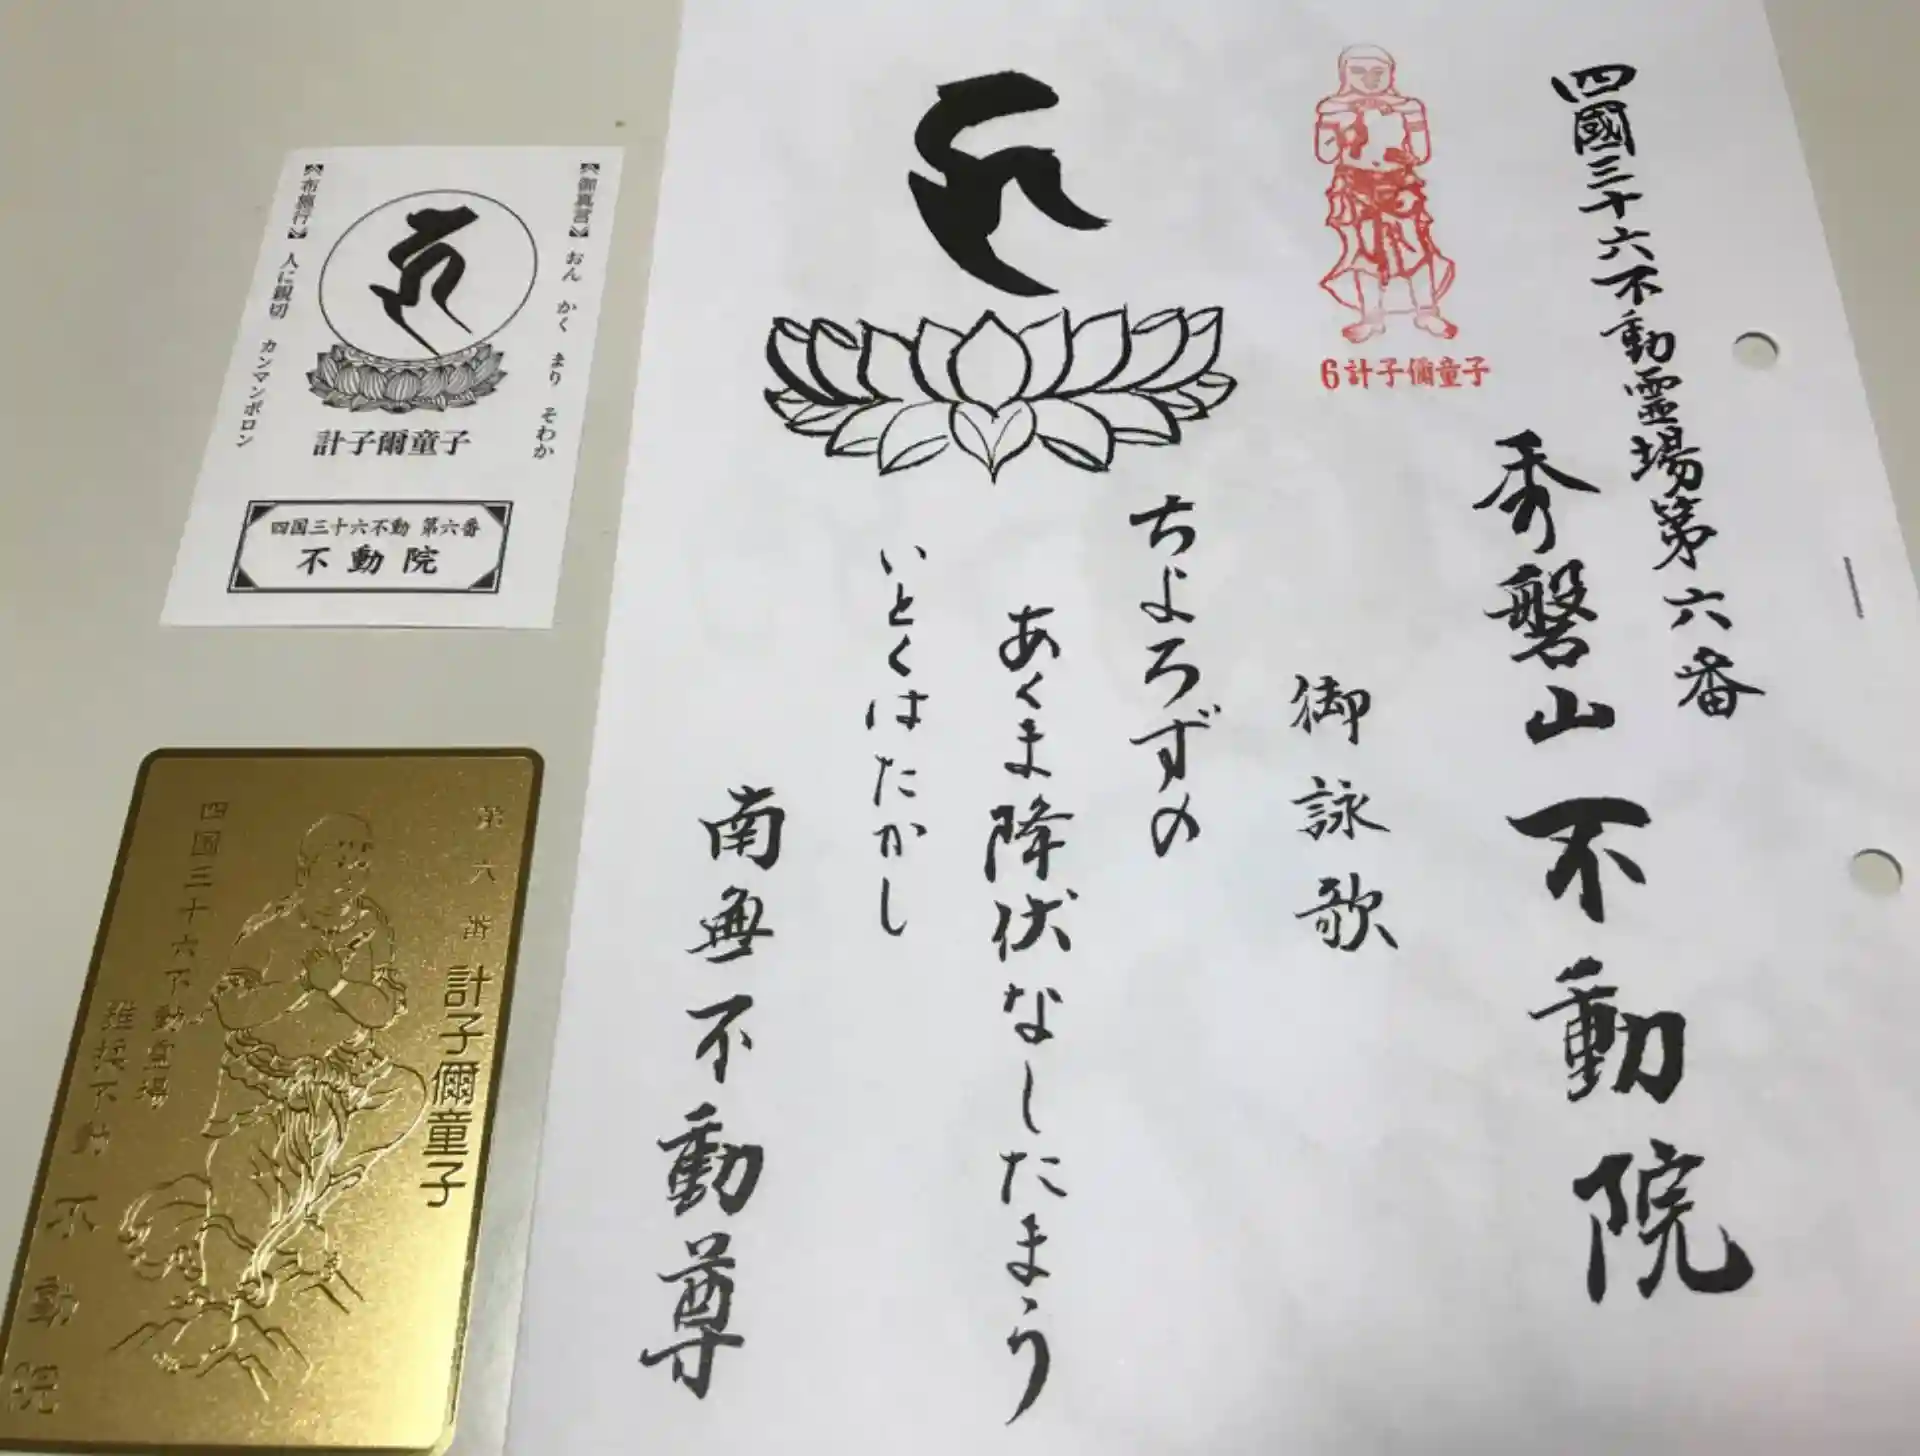 四國三十六不動霊場第六番
秀磐山不動院
6計子儞童子
御詠歌
ちよろずの
あくま降伏なしたまう
いとくはたかし
南無不動尊
【御真言】 おん かく まり そわか
【布施行】 人に親切 カンマンボロン
計子爾童子
四国三十六不動 第六番
不動院
第六番 計子儞童子
四国三十六不動霊場
不動院